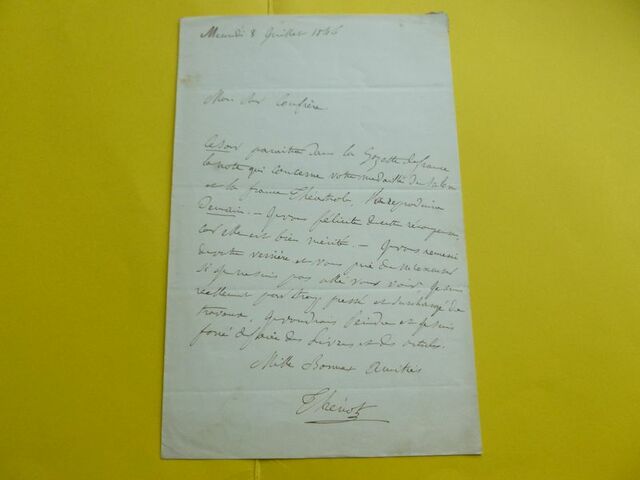 8 Juillet 1846
Mon cher Confrère
Ce soir paraitra dans la Gazette de france
la note qui concerne votre medaille du salon
et la france Théatrale la reproduira
Demain. — Je vous félicite de cette récompense
car elle est bien mérité. — Je vous remercie
de votre et vous prie de m'excuser
si je ne suis pas allé vous voir, je suis
reellement par trop pressé et surchargé de
travaux, je voudrais peindre et je suis
forcé de faire des Livres et des articles.
Mille Bonnes Amitiés
Thénot